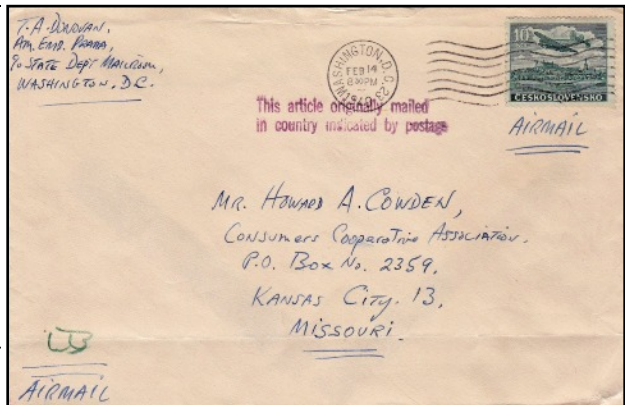 T. A. DONOVAN,
AM. EMB. PRAHA,
℅ STATE DEPT MAILROOM,
WASHINGTON. D.C.
WASHINGTON, D.C. 23
FEB 14
8 30 PM
10
ČESKOSLOVENSKO
This article originally mailed
in country indicated by postage
AIRMAIL
MR. HOWARD A. COWDEN,
CONSUMERS COOPERATIVE ASSOCIATION.
P.O. BOX NO. 2359,
KANSAS CITY. 13,
MISSOURI.
AIRMAIL